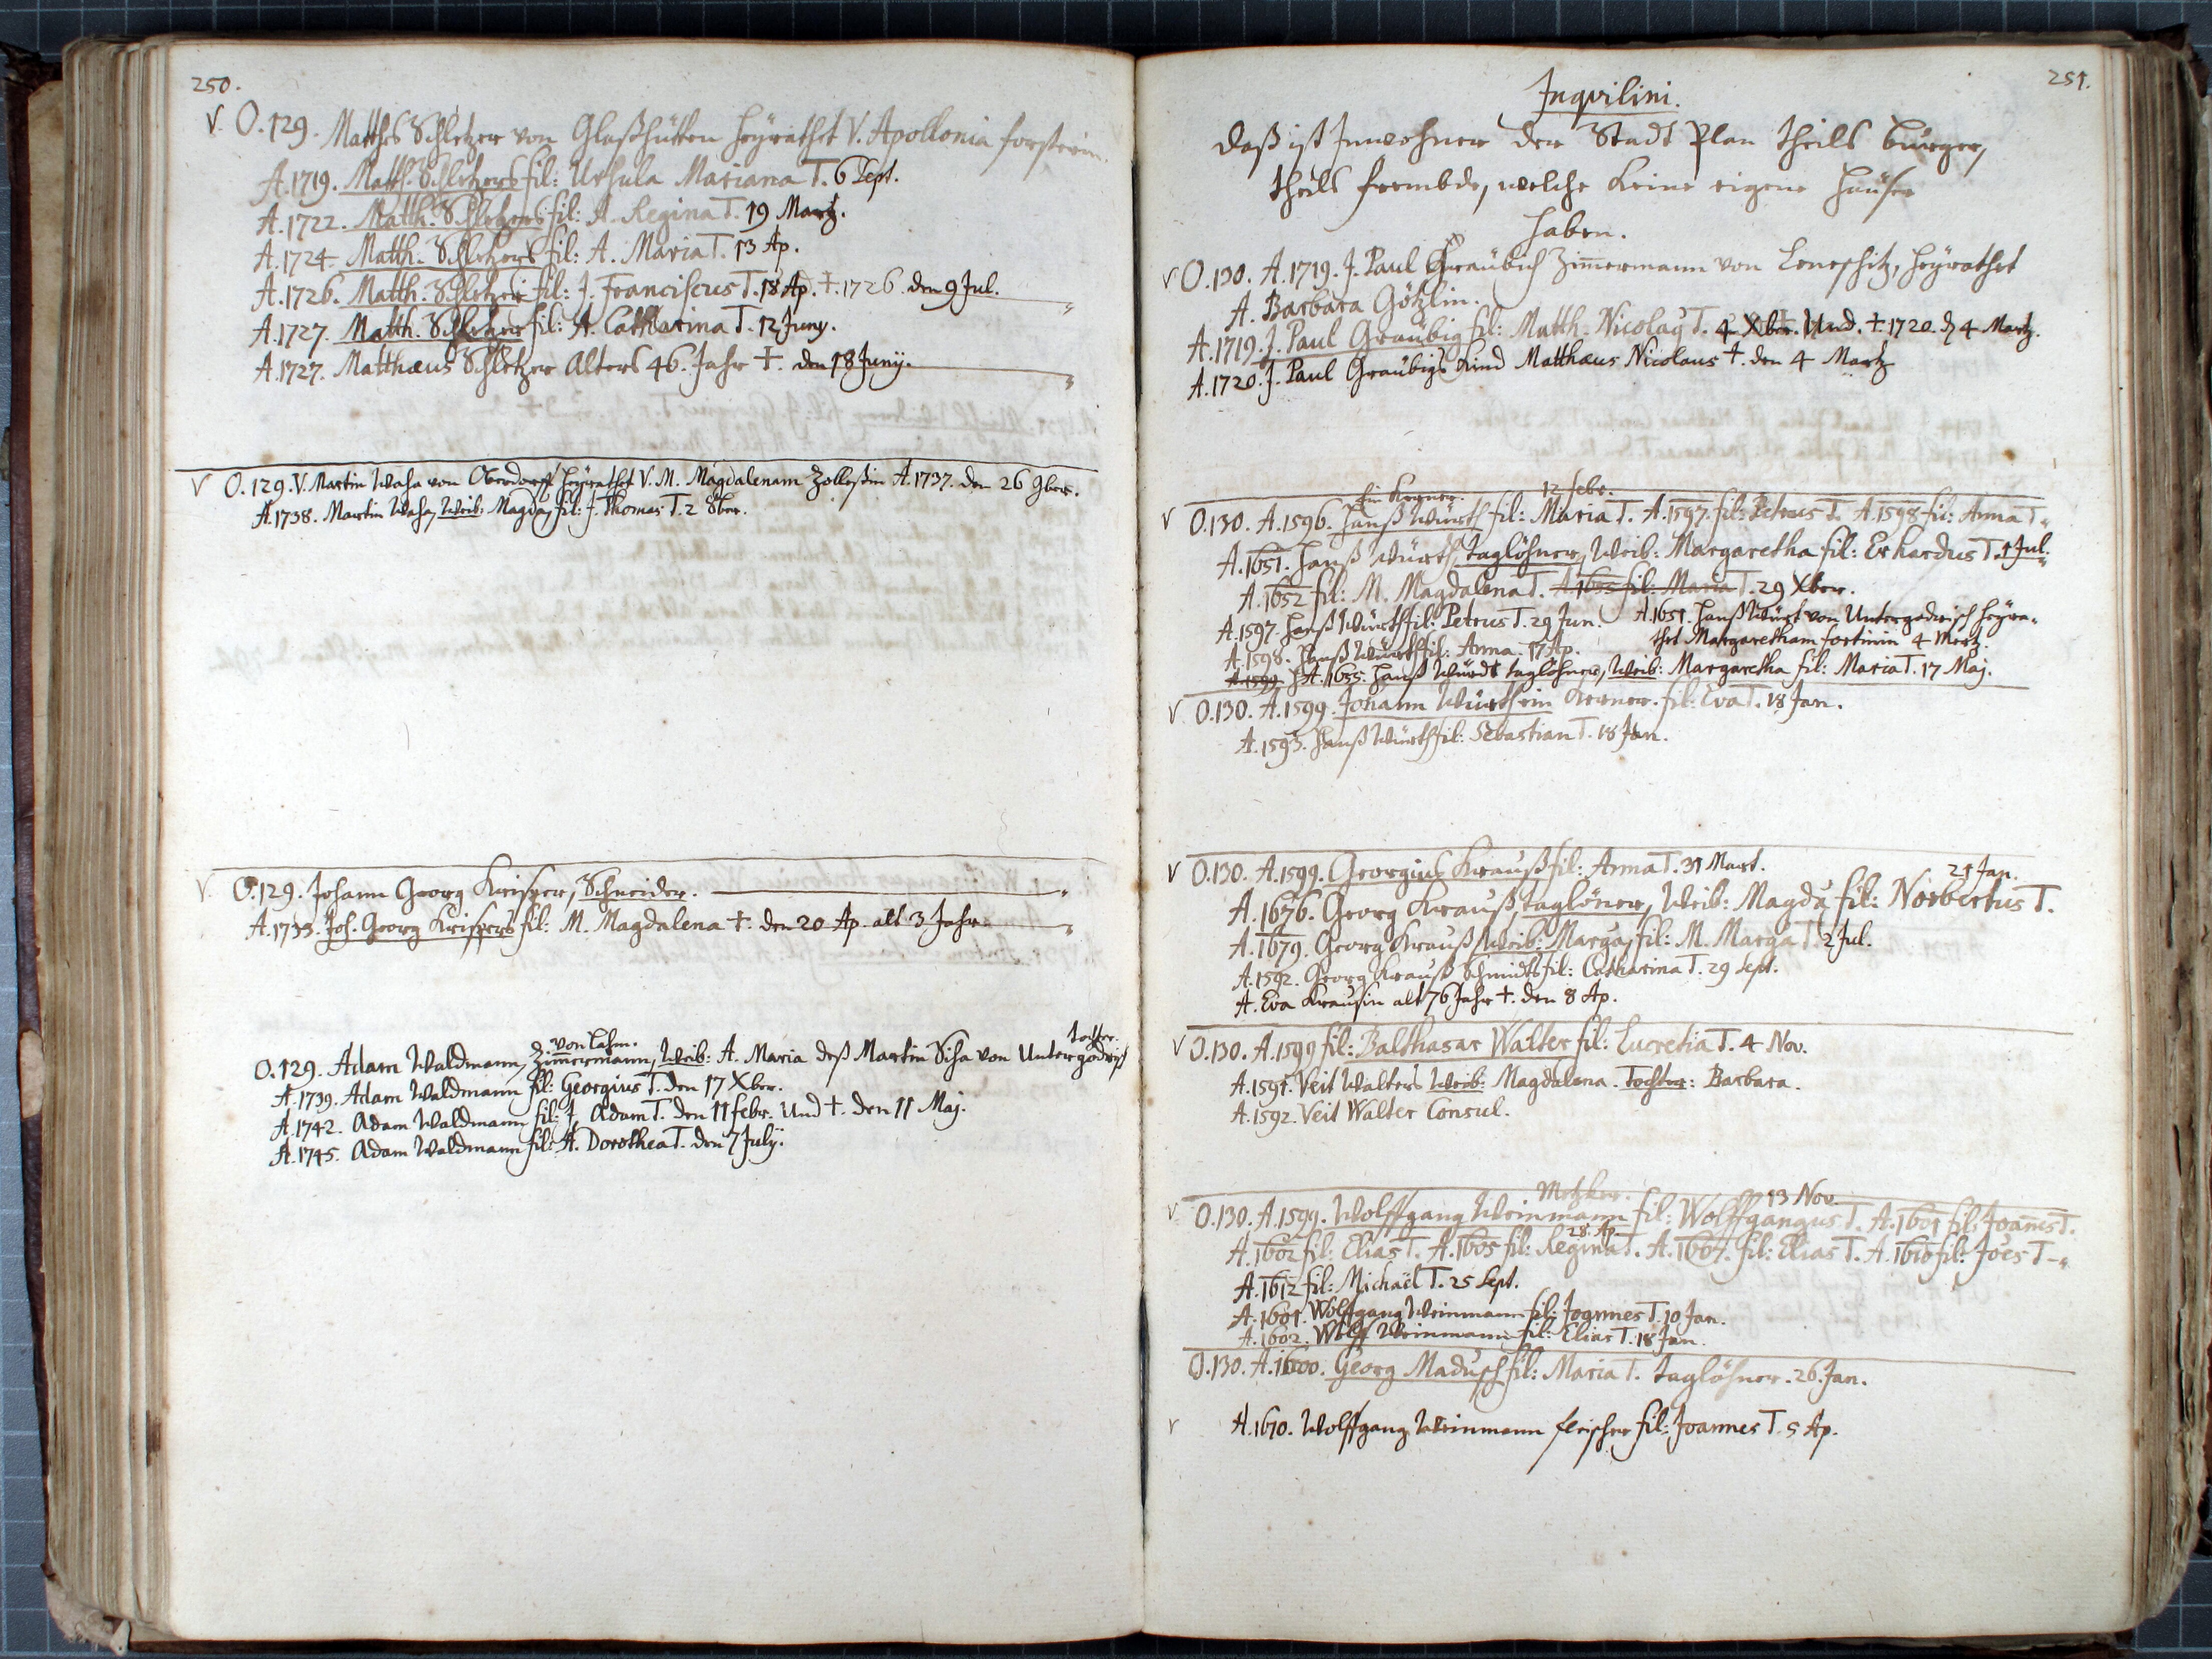 250.
V. O.129. Matthes Schletzer von Glaßhütten heÿrathet V. Apollonia forsterin.
A.1719. Matth. Schletzers fil: Ursula Mariana T. 6 Sept.
A.1722. Matth. Schletzers fil: A. Regina T. 19 Martz.
A.1724. Matth. Schletzers fil: A. Maria T. 13 Ap.
A.1726. Matth. Schletzer fil: J. Franciscus T. 18 Ap. †. 1726. den 9 Jul.
A.1727. Matth. Schletzer fil: A. Catharina T. 12 Juny.
A.1727. Matthæus Schletzer Alters 46. Jahr †. den 18 Junÿ.
V O.129. V. Martin Waha von Oberdorff heÿrathet V. M. Magdalenam Zolleßin A.1737. den 26 9ber.
A.1738. Martin Waha, Weib: Magda, fil: J. Thomas T. 2 8ber.
V. O.129. Johann Georg Krisper, Schneider.
A.1733. Joh. Georg Krispers fil: M. Magdalena †. den 20 Ap. alt 3 Jahr
von Lahm. tochter.
O.129. Adam Waldmann, Zimmermann, Weib: A. Maria deß Martin Siha von Untergodrisch
A.1739. Adam Waldmann fil: Georgius T. den 17 Xber.
A.1742. Adam Waldmann fil: J. Adam T. den 11 febr. Und †. den 11 Maj.
A.1745. Adam Waldmann fil: A. Dorothea T. den 7 Julÿ.
251.
Inqvilini.
Daß ist Inwohner der Stadt Plan theils bürger,
theils frembde, welche keine eigene häuser
haben.
V O.130. A.1719. J. Paul Graübich Zimmermann von Leneschitz, heÿrathet
A. Barbara Götzlin.
A.1719. J. Paul Graübig fil: Matth. Nicolaÿ T. 4 Xber. Und. †. 1720. d 4 Martz.
A.1720. J. Paul Graübigs Kind Matthæus Nicolaus †. den 4 Martz
12 febr.
V O.130. A.1596. Hanß Würth fil: Maria T. A.1597. fil: Petrus T. A.1598 fil: Anna T.
A.1651. Hanß Würth, taglöhner, Weib: Margaretha fil: Erhardus T. 1 Jul.
A.1652 fil: M. Magdalena T. A.1655 fil: Maria T. 29 Xber.
A.1597. Hanß Würth fil: Petrus T. 29 Jun. A.1651. Hanß Würt von Untergodrisch heÿra-
A.1598. Hanß Würth fil: Anna. 17 Ap. thet Margaretham fortinin 4 Mertz.
A.1599 H A.1655. Hanß Würdt taglöhner, Weib: Margaretha fil: Maria T. 17 Maj.
V O.130. A.1599. Johann Würth ein Kerner. fil: Eva T. 18 Jan.
A.1593. Hanß Würth fil: Sebastian T. 18 Jan.
V O.130. A.1599. Georgius Krauß fil: Anna T. 31 Mart. 21 Jan.
A.1676. Georg Krauß, taglöner, Weib: Magda fil: Norbertus T.
A.1679. Georg Krauß Weib: Marga, fil: M. Marga T. 2 Jul.
A.1592. Georg Krauß Schmidts fil: Catharina T. 29 Sept.
A. Eva Kraußin alt 76 Jahr †. den 8 Ap.
V O.130. A.1599 fil: Balthasar Walter fil: Lucretia T. 4 Nov.
A.1591. Veit Walters Weib: Magdalena. Tochter: Barbara.
A.1592. Veit Walter Consul.
Metzker. 13 Nov.
V. O.130. A.1599. Wolffgang Weinmann fil: Wolffgangus T. A.1601 fil: Joañes T.
28. Ap.
A.1602 fil: Elias T. A.1605 fil: Regina T. A.1607. fil: Elias T. A.1610 fil: Joes T.
A.1612 fil: Michaël T. 25 Sept.
A.1601. Wolffgang Weinmann fil: Joannes T. 10 Jan.
A.1602. Wolff Weinmann fil: Elias T. 18 Jan.
O.130. A.1600. Georg Madusch fil: Maria T. taglöhner. 26. Jan.
V A.1610. Wolffgang Weinmann fleischer fil: Joannes T. 5 Ap.